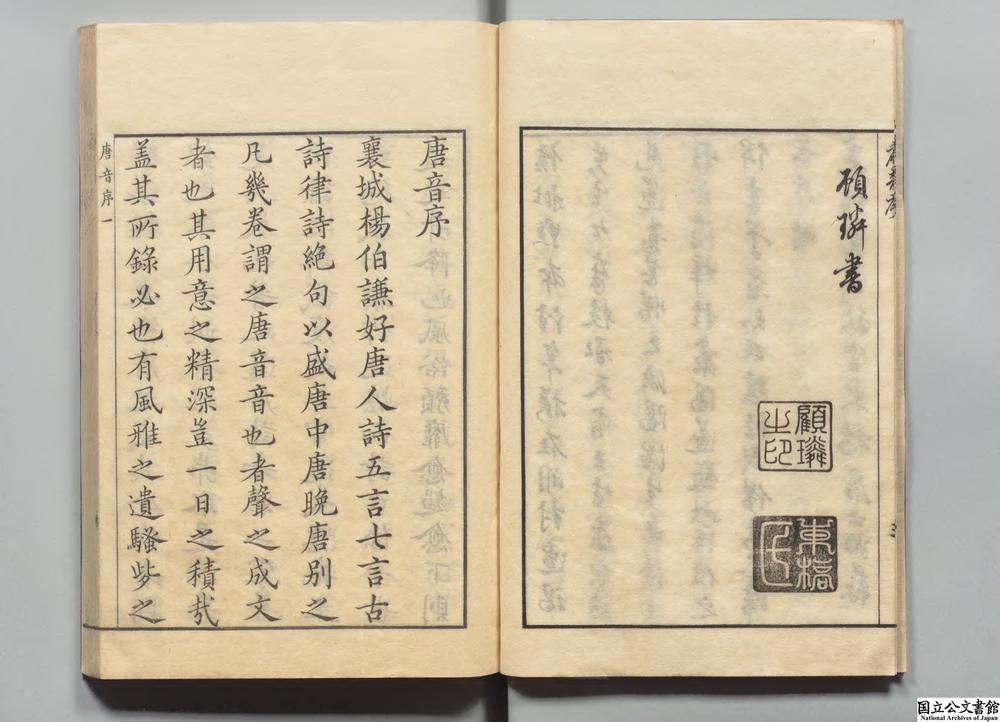 顧璘書
顧璘
之印
東橋
氏
唐音序
襄城楊伯謙好唐人詩五言七言古
詩律詩絶句以盛唐中唐晩唐别之
凡幾卷謂之唐音音也者聲之成文
者也其用意之精深豈一日之積㢤
盖其所錄必也有風雅之遺騷些之
唐音序一
国立公文書館
National Archives of Japan